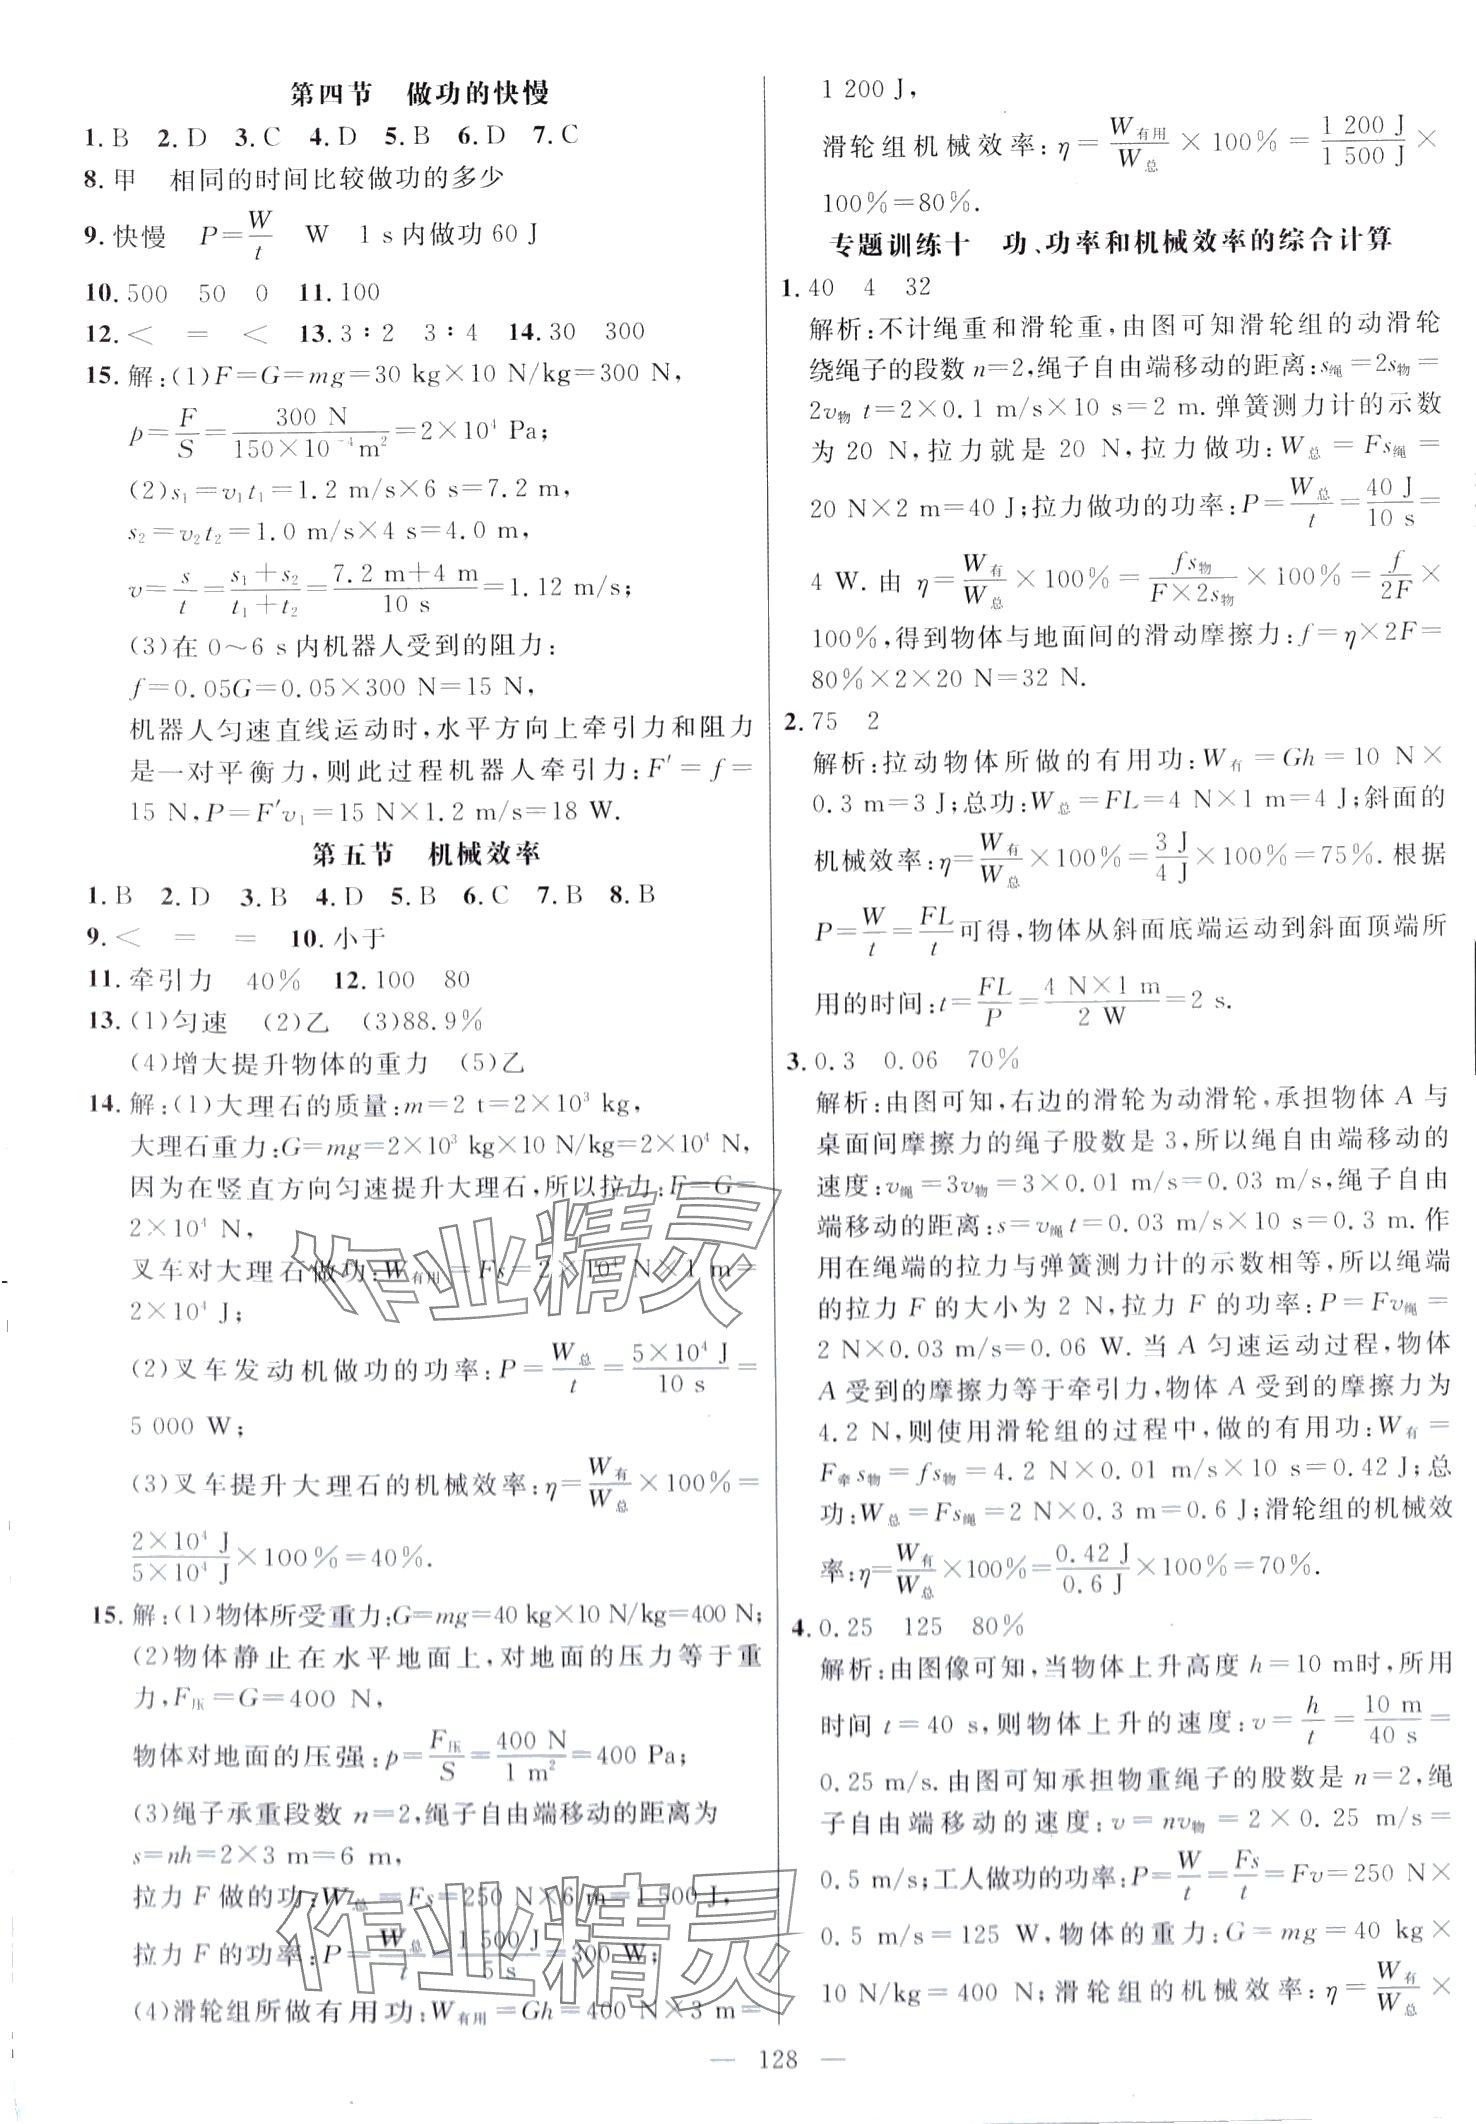 第四节　做功的快慢
1. B　2. D　3. C　4. D　5. B　6. D　7. C
8. 甲　相同的时间比较做功的多少
9. 快慢　P=W/t　W　1 s内做功60 J
10. 500　50　0　11. 100
12. <　=　<　13. 3∶2　3∶4　14. 30　300
15. 解:(1)F=G=mg=30 kg×10 N/kg=300 N,
p=F/S=300 N/(150×10⁻⁴m²)=2×10⁴ Pa;
(2)s₁=v₁t₁=1.2 m/s×6 s=7.2 m,
s₂=v₂t₂=1.0 m/s×4 s=4.0 m,
v=s/t=(s₁+s₂)/(t₁+t₂)=(7.2 m+4 m)/10 s=1.12 m/s;
(3)在0～6 s内机器人受到的阻力:
f=0.05G=0.05×300 N=15 N,
机器人匀速直线运动时,水平方向上牵引力和阻力
是一对平衡力,则此过程机器人牵引力:F′=f=
15 N,P=F′v₁=15 N×1.2 m/s=18 W.
第五节　机械效率
1. B　2. D　3. B　4. D　5. B　6. C　7. B　8. B
9. <　=　=　10. 小于
11. 牵引力　40%　12. 100　80
13. (1)匀速　(2)乙　(3)88.9%
(4)增大提升物体的重力　(5)乙
14. 解:(1)大理石的质量:m=2 t=2×10³ kg,
大理石重力:G=mg=2×10³ kg×10 N/kg=2×10⁴ N,
因为在竖直方向匀速提升大理石,所以拉力:F=G=
2×10⁴ N,
叉车对大理石做功:W有用=Fs=2×10⁴ N×1 m=
2×10⁴ J;
(2)叉车发动机做功的功率:P=W总/t=5×10⁴ J/10 s=
5 000 W;
(3)叉车提升大理石的机械效率:η=W有/W总×100%=
2×10⁴ J/5×10⁴ J×100%=40%.
15. 解:(1)物体所受重力:G=mg=40 kg×10 N/kg=400 N;
(2)物体静止在水平地面上,对地面的压力等于重
力,F压=G=400 N,
物体对地面的压强:p=F压/S=400 N/1 m²=400 Pa;
(3)绳子承重段数n=2,绳子自由端移动的距离为
s=nh=2×3 m=6 m,
拉力F做的功:W总=Fs=250 N×6 m=1 500 J,
拉力F的功率:P=W总/t=1 500 J/5 s=300 W;
(4)滑轮组所做有用功:W有用=Gh=400 N×3 m=
1 200 J,
滑轮组机械效率:η=W有用/W总×100%=1 200 J/1 500 J×
100%=80%.
专题训练十　功、功率和机械效率的综合计算
1. 40　4　32
解析:不计绳重和滑轮重,由图可知滑轮组的动滑轮
绕绳子的段数n=2,绳子自由端移动的距离:s绳=2s物=
2v物t=2×0.1 m/s×10 s=2 m.弹簧测力计的示数
为20 N,拉力就是20 N,拉力做功:W总=Fs绳=
20 N×2 m=40 J;拉力做功的功率:P=W总/t=40 J/10 s=
4 W.由η=W有/W总×100%=fs物/(F×2s物)×100%=f/2F×
100%,得到物体与地面间的滑动摩擦力:f=η×2F=
80%×2×20 N=32 N.
2. 75　2
解析:拉动物体所做的有用功:W有=Gh=10 N×
0.3 m=3 J;总功:W总=FL=4 N×1 m=4 J;斜面的
机械效率:η=W有/W总×100%=3 J/4 J×100%=75%.根据
P=W/t=FL/t可得,物体从斜面底端运动到斜面顶端所
用的时间:t=FL/P=(4 N×1 m)/2 W=2 s.
3. 0.3　0.06　70%
解析:由图可知,右边的滑轮为动滑轮,承担物体A与
桌面间摩擦力的绳子股数是3,所以绳自由端移动的
速度:v绳=3v物=3×0.01 m/s=0.03 m/s,绳子自由
端移动的距离:s=v绳t=0.03 m/s×10 s=0.3 m.作
用在绳端的拉力与弹簧测力计的示数相等,所以绳端
的拉力F的大小为2 N,拉力F的功率:P=Fv绳=
2 N×0.03 m/s=0.06 W.当A匀速运动过程,物体
A受到的摩擦力等于牵引力,物体A受到的摩擦力为
4.2 N,则使用滑轮组的过程中,做的有用功:W有=
F牵s物=fs物=4.2 N×0.01 m/s×10 s=0.42 J;总
功:W总=Fs绳=2 N×0.3 m=0.6 J;滑轮组的机械效
率:η=W有/W总×100%=0.42 J/0.6 J×100%=70%.
4. 0.25　125　80%
解析:由图像可知,当物体上升高度h=10 m时,所用
时间t=40 s,则物体上升的速度:v=h/t=10 m/40 s=
0.25 m/s.由图可知承担物重绳子的股数是n=2,绳
子自由端移动的速度:v=nv物=2×0.25 m/s=
0.5 m/s;工人做功的功率:P=W/t=Fs/t=Fv=250 N×
0.5 m/s=125 W,物体的重力:G=mg=40 kg×
10 N/kg=400 N;滑轮组的机械效率:η=W有/W总×
— 128 —
作业精灵
作业精灵